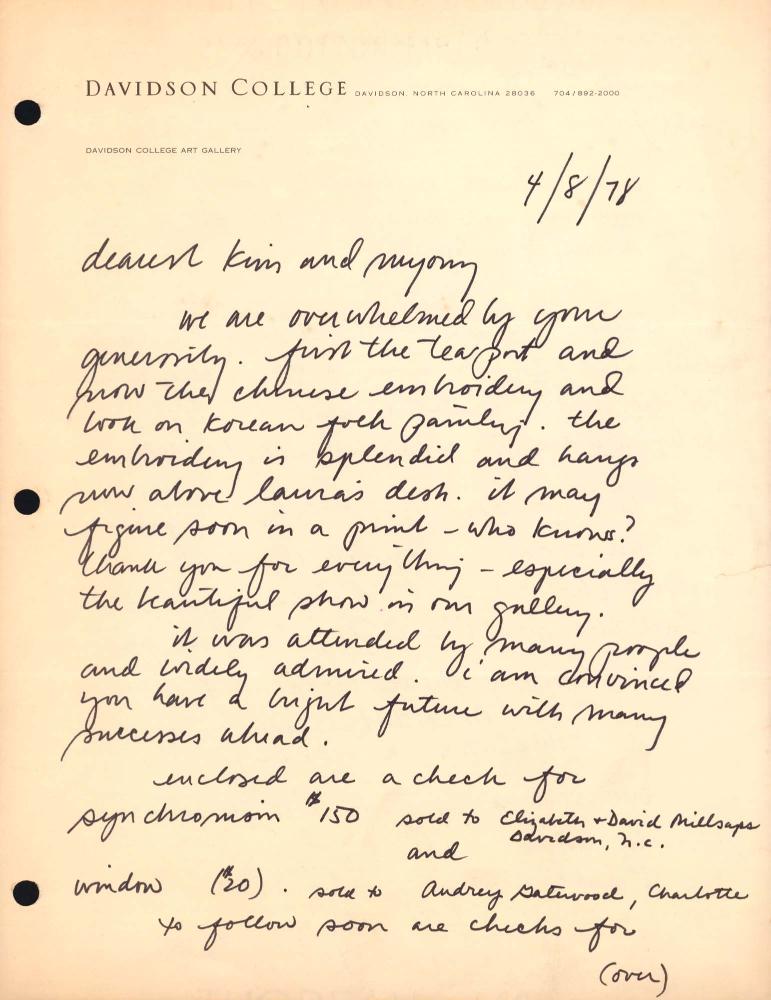 DAVIDSON COLLEGE DAVIDSON, NORTH CAROLINA 28036 704/892-2000
DAVIDSON COLLEGE ART GALLERY
4/8/78
dearest Kim and myong
we are overwhelmed by your
generosity. first the tea pot and
now the chinese embroidery and
book on Korean folk painting. the
embroidery is splendid and hangs
now above laura's desk. it may
figure soon in a print – who knows?
thank you for everything – especially
the beautiful show in our gallery.
it was attended by many people
and widely admired. i am convinced
you have a bright future with many
successes ahead.
enclosed are a check for
$150 sold to Elizabeth + David Millsaps
Davidson, n.c.
and
window ($20). sold to Audrey Gatewood, Charlotte
to follow soon are checks for
(over)